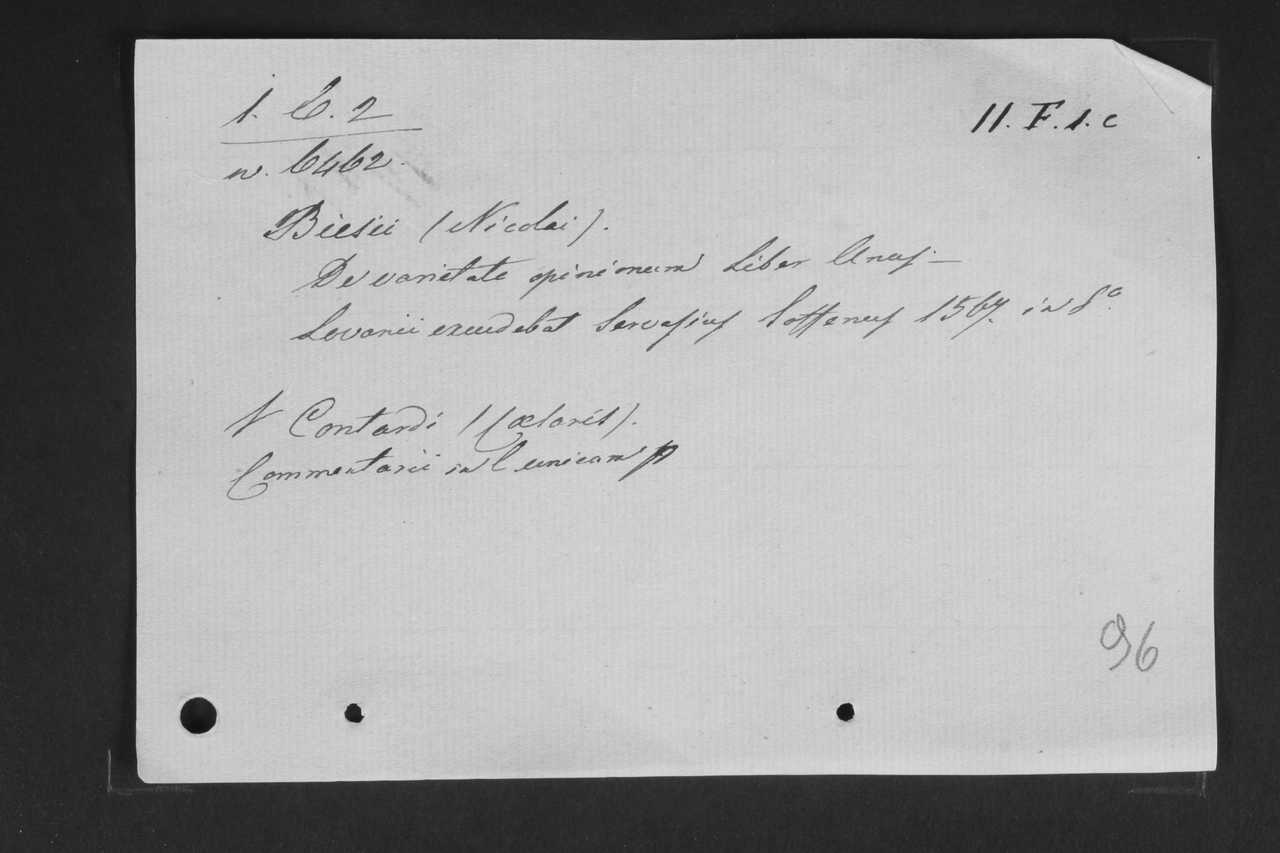 1. C. 2
11. F. 1. c
n. 6462.
Biesii (Nicolai).
De varietate opinionum Liber Unus.—
Lovanii excudebat Servasius Sassenus 1567. in 8.º
V Contardi (Caelaris).
Commentarii in l unicam
96